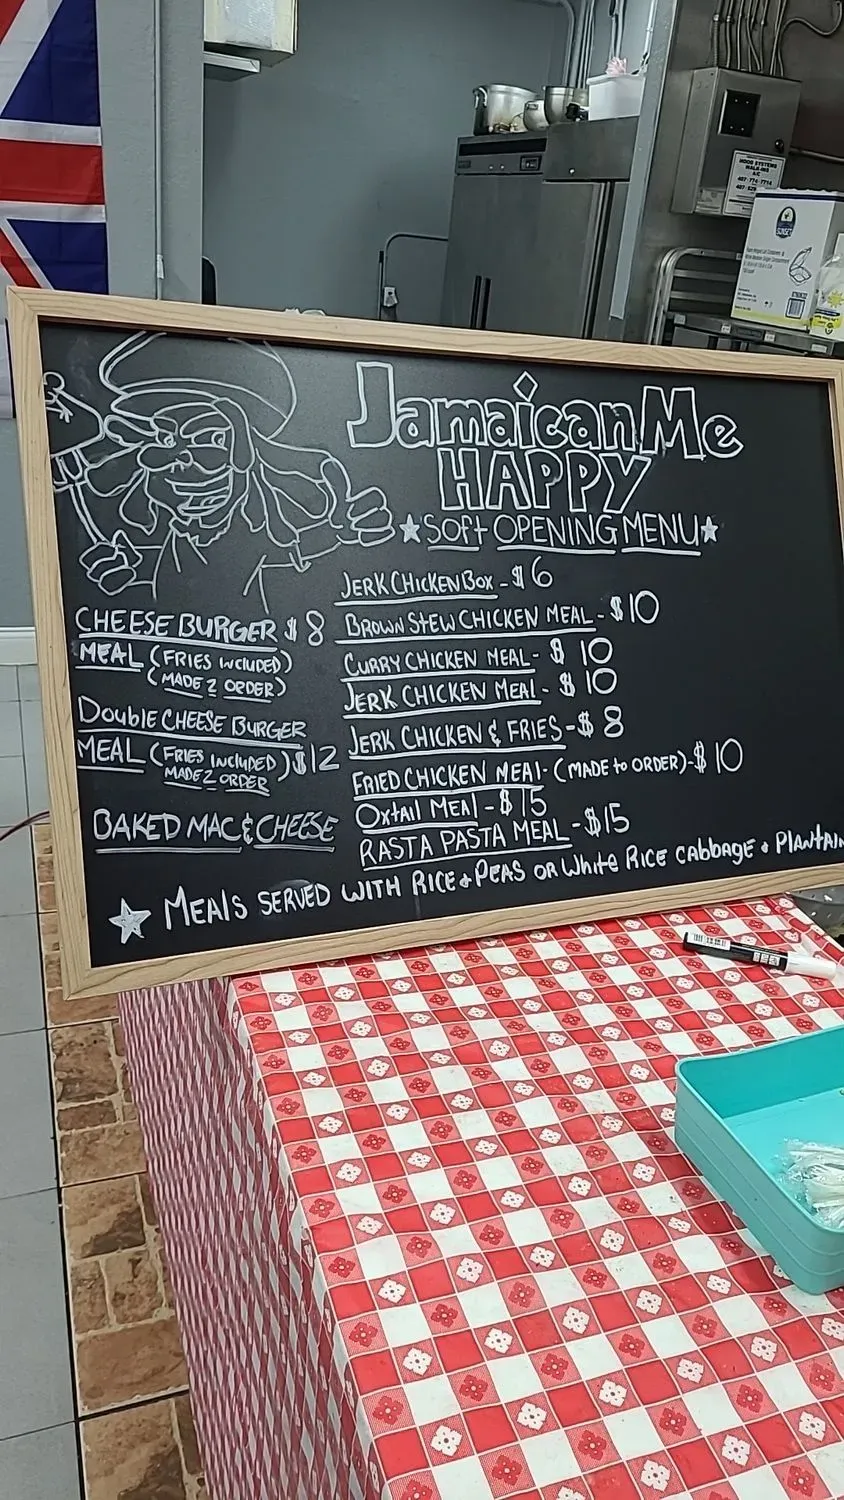 HOOD SYSTEMS
WALK-INS
A/C
407-774-7714
Jamaican Me
HAPPY
★SOFT OPENING MENU★
CHEESE BURGER $8
MEAL (FRIES INCLUDED)
(MADE 2 ORDER)
Double CHEESE BURGER
MEAL (FRIES INCLUDED) $12
MADE 2 ORDER
BAKED MAC & CHEESE
JERK CHICKEN BOX - $6
BROWN STEW CHICKEN MEAL - $10
CURRY CHICKEN MEAL - $10
JERK CHICKEN MEAL - $10
JERK CHICKEN & FRIES - $8
FRIED CHICKEN MEAL - (MADE to ORDER) - $10
Oxtail Meal - $15
RASTA PASTA MEAL - $15
★ MEALS SERVED WITH RICE & PEAS OR White RICE CABBAGE & PLANTAIN